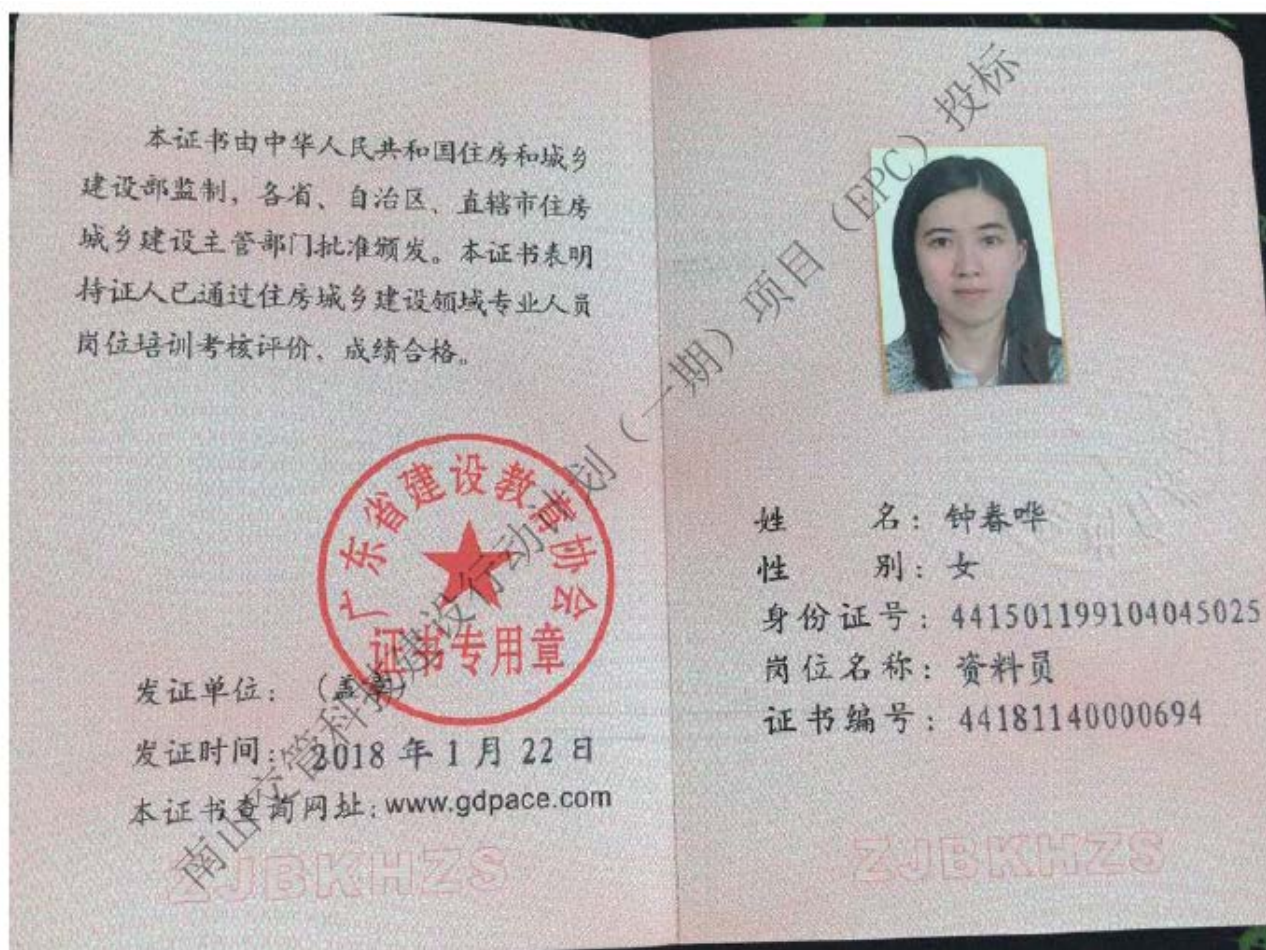 本证书由中华人民共和国住房和城乡
建设部监制，各省、自治区、直辖市住房
城乡建设主管部门批准颁发。本证书表明
持证人已通过住房城乡建设领域专业人员
岗位培训考核评价、成绩合格。
广东省建设教育协会
证书专用章
发证单位：（盖章）
发证时间：2018 年 1 月 22 日
本证书查询网址：www.gdpace.com
ZJBKHZS
姓 名：钟春晔
性 别：女
身份证号：441501199104045025
岗位名称：资料员
证书编号：44181140000694
ZJBKHZS
建设行动计划（一期）项目（EPC）投标